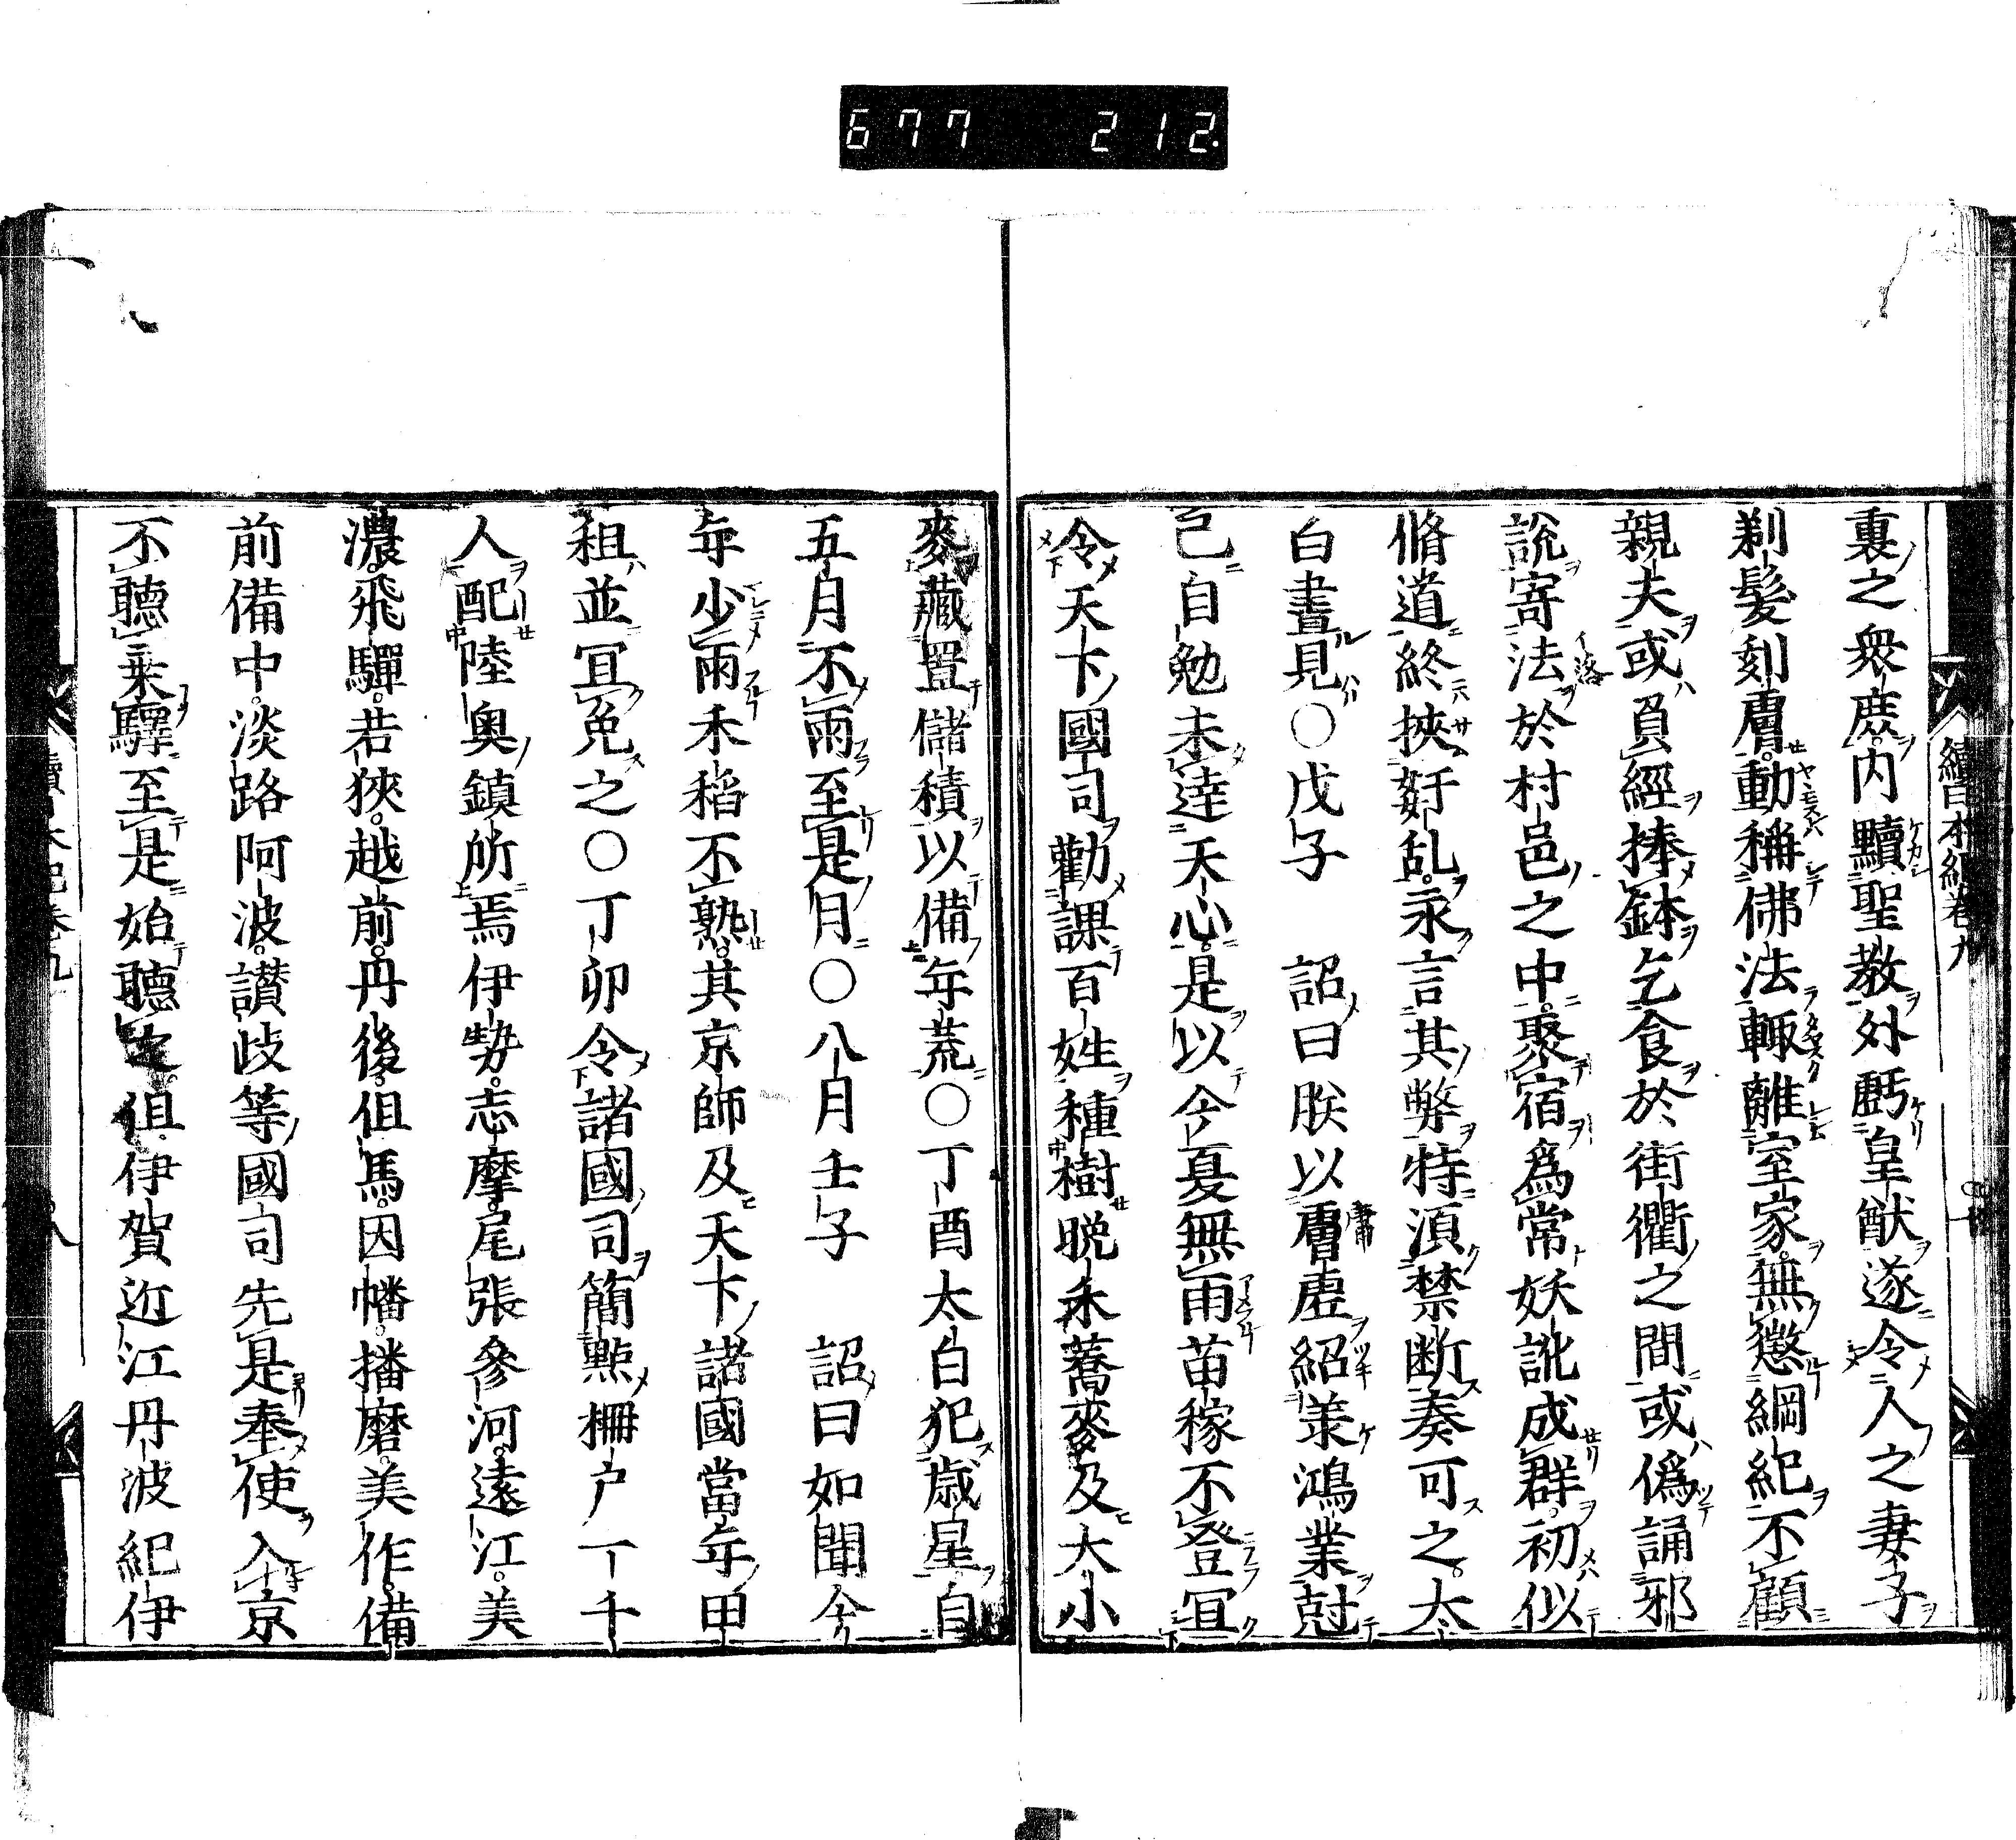 677 212.
續日本紀卷九
裏之衆庶内黷聖教外虧皇猷遂令人之妻子
剃髮刻膚動稱佛法輙離室家無懲綱紀不顧
親夫或負經捧鉢乞食於街衢之間或僞誦邪
説寄法於村邑之中聚宿爲常妖訛成群初似
脩道終挾姧乱永言其弊特湏禁断奏可之太
白晝見○戊子　詔曰朕以膚虚紹羕鴻業尅
己自勉未逹天心是以今夏無雨苗稼不登冝
令天下國司勸課百姓種樹晩禾蕎麥及大小
麥藏置儲積以備年荒○丁酉太白犯歳星自
五月不雨至是月○八月壬子　詔曰如聞今
年少雨禾稻不熟其京師及天下諸國當年田
租並冝免之○丁卯令諸國司簡㸃柵戸一千
人配陸奥鎮所焉伊勢志摩尾張參河遠江美
濃飛驒若狹越前丹後但馬因幡播磨美作備
前備中淡路阿波讃岐等國司先是奉使入京
不聽乗驛至是始聽之但伊賀近江丹波紀伊